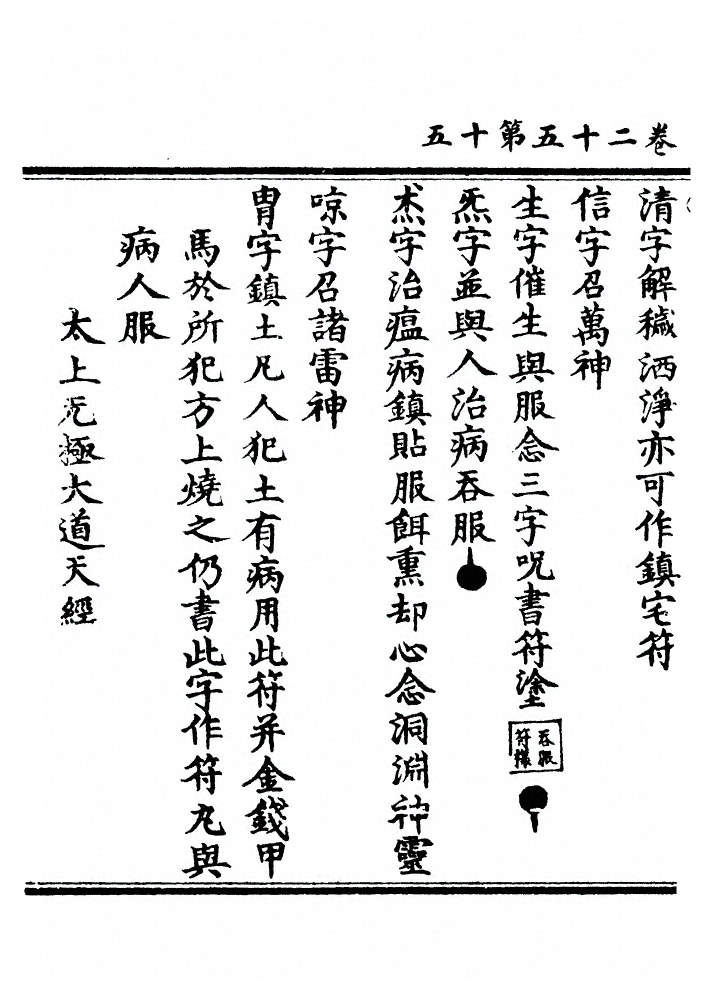 卷二十五第十五
清字解穢洒淨亦可作鎮宅符
信字召萬神
生字催生與服念三字呪書符塗
吞服
符樣
炁字並與人治病吞服
字治瘟病鎮貼服餌熏却心念洞淵神靈
喨字召諸雷神
胄字鎮土凡人犯土有病用此符并金錢甲
馬於所犯方上燒之仍書此字作符丸與
病人服
太上无極大道天經